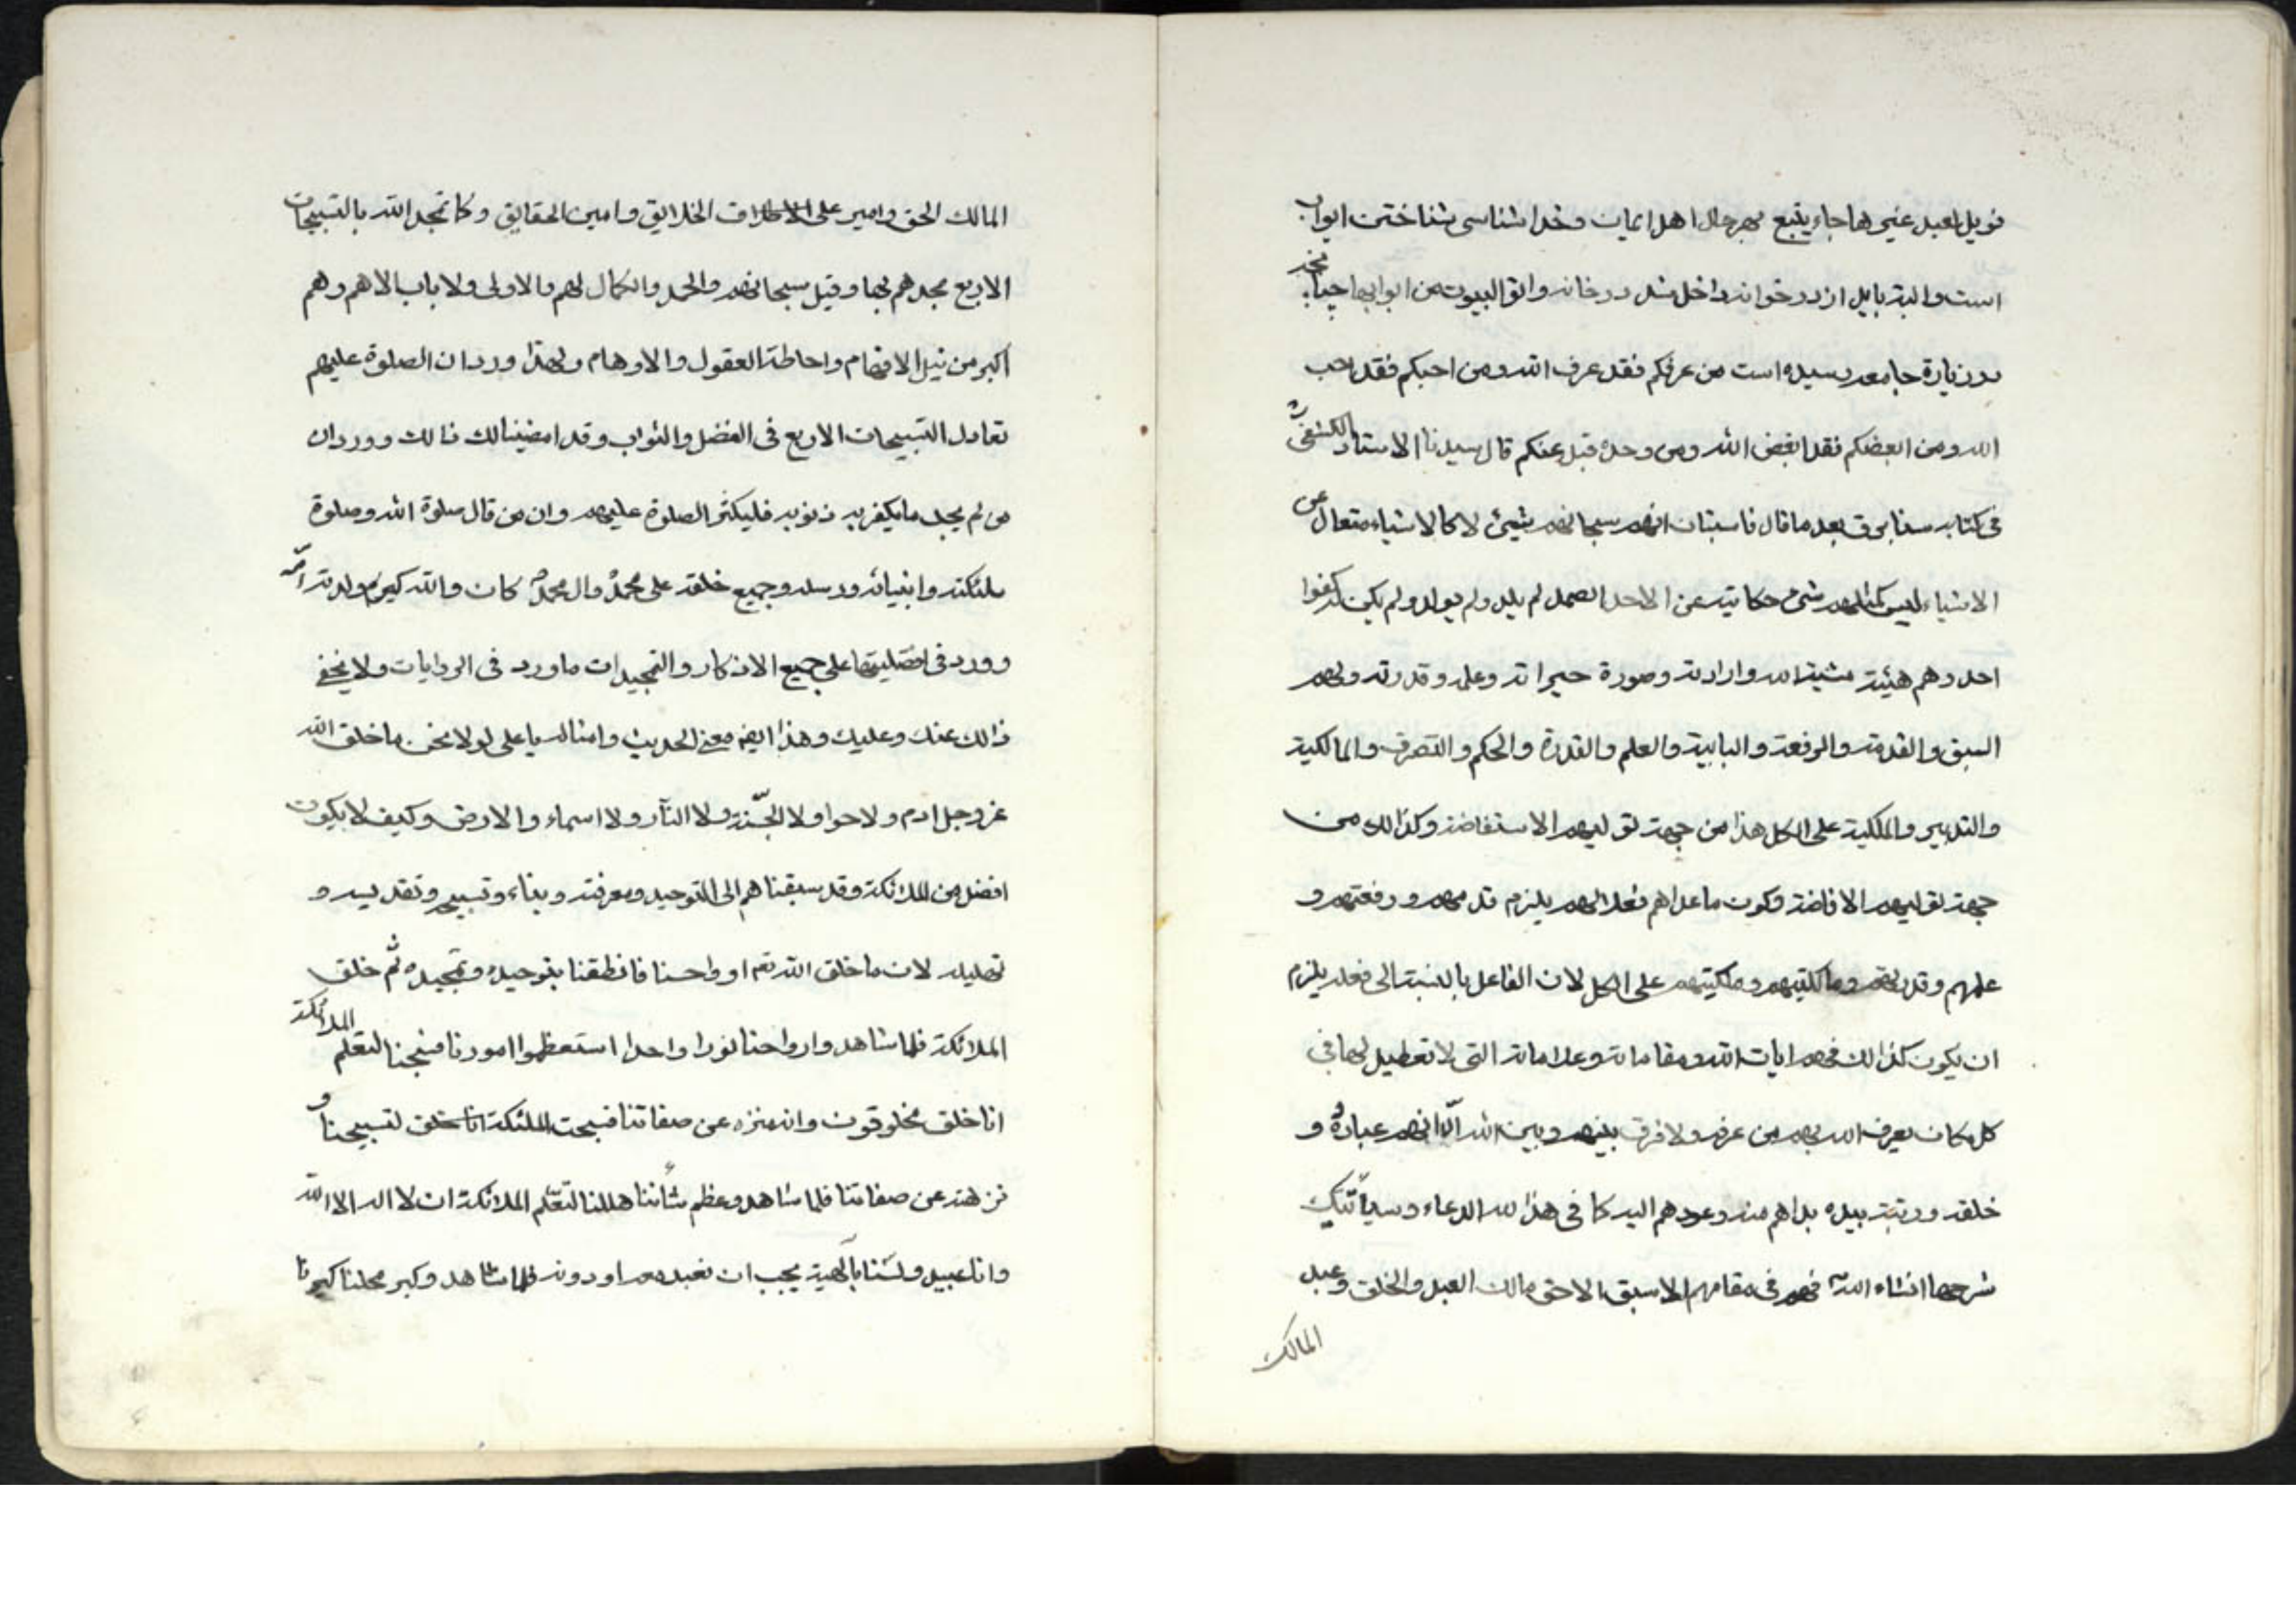 فویل لعبد غیرها جاء یتبع بهر حال اهل ایمان و خدا شناسی شناختن ابواب
است و البته باید از در خوانه داخل شد در خانه واتوا البیوت من ابوابها چنانچه
در زیارة جامعه رسیده است من عرفکم فقد عرف الله ومن احبکم فقد احب
الله ومن ابغضکم فقد ابغض الله ومن وحده قبل عنکم قال سیدنا الاستاد
فی کتابه سنابرق بعد ما قال فاستبان انهم سبحانهم شیئ لا کالاشیاء متعال عن
الاشیاء لیس کمثلهم شیئ حکایته عن الاحد الصمد لم یلد ولم یولد ولم یکن له کفوا
احد وهم هیئة مشیة الله وارادته وصورة حیواته وعلمه وقدرته ولهم
السبق والقدمة والرفعة والبابیة والعلم والقدرة والحکم والتصرف والمالکیة
والتدبیر والملکیة علی الکل هذا من جهة تولیهم الاستفاضة وکذالک من
جهة تولیهم الافاضة وکون ماعداهم فعلا لهم یلزم قدمهم ورفعتهم و
علمهم وقدرتهم ومالکیتهم وملکیتهم علی الکل لان الفاعل بالنسبة الی فعله یلزم
ان یکون کذالک فهم ایات الله ومقاماته وعلاماته التی لا تعطیل لها فی
کل مکان یعرف الله بهم من عرفه ولا فرق بینهم وبین الله الّا انهم عباده و
خلقه ورتبته بیده بداهم منه وعودهم الیه کما فی هذا الدعاء وسیأتیک
شرحها انشاء الله فهم فی مقامهم الاسبق الاحق مالک العبد والخلق وعبد
المالک
المالک الحق وامیر علی الخلایق وامین الحقایق وکما تمجد الله بالتسبیحات
الاربع مجدهم بها وقیل سبحانهم والحمد والکمال لهم والاولی ولا باب الا هم وهم
اکبر من نیل الافهام واحاطة العقول والاوهام ولهذا ورد ان الصلوة علیهم
تعادل التسبیحات الاربع فی الفضل والثواب وقد امضینا لک ذالک وورد ان
من لم یجد ما یکفر به ذنوبه فلیکثر الصلوة علیهم وان من قال صلوة الله وصلوة
ملئکته وانبیائه ورسله وجمیع خلقه علی محمد وال محمد کان والله کیوم ولدته امّه
وورد فی افضلیتها علی جمیع الاذکار والتمجیدات ما ورد فی الروایات ولا یخفی
ذالک عنک وعلیک وهذا ایضا معنی الحدیث وامثاله یا علی لولا نحن ما خلق الله
عز وجل ادم ولا حوا ولا الجّنة ولا النّار ولا اسماء والارض وکیف لا یکون
افضل من الملائکة وقد سبقناهم الی التوحید ومعرفته وبناء وتسبیح وتقدیسه و
تهلیله لان ما خلق الله تعم ارواحنا فانطقنا بتوحیده وتمجیده ثم خلق
الملائکة فلما شاهدوا ارواحنا نورا واحدا استعظموا امورنا فسبحنا لتعلم الملائکة
انا خلق مخلوقون وانه منزه عن صفاتنا فسبحت الملئکة لتسبیحنا و
نزهته عن صفاتنا فلما شاهدو عظم شأننا هللنا لتعلم الملائکة ان لا اله الا الله
وانا عبید ولسنا بآلهیة یجب ان نعبد معه او دونه فلما شاهدو کبر محلنا کبرنا